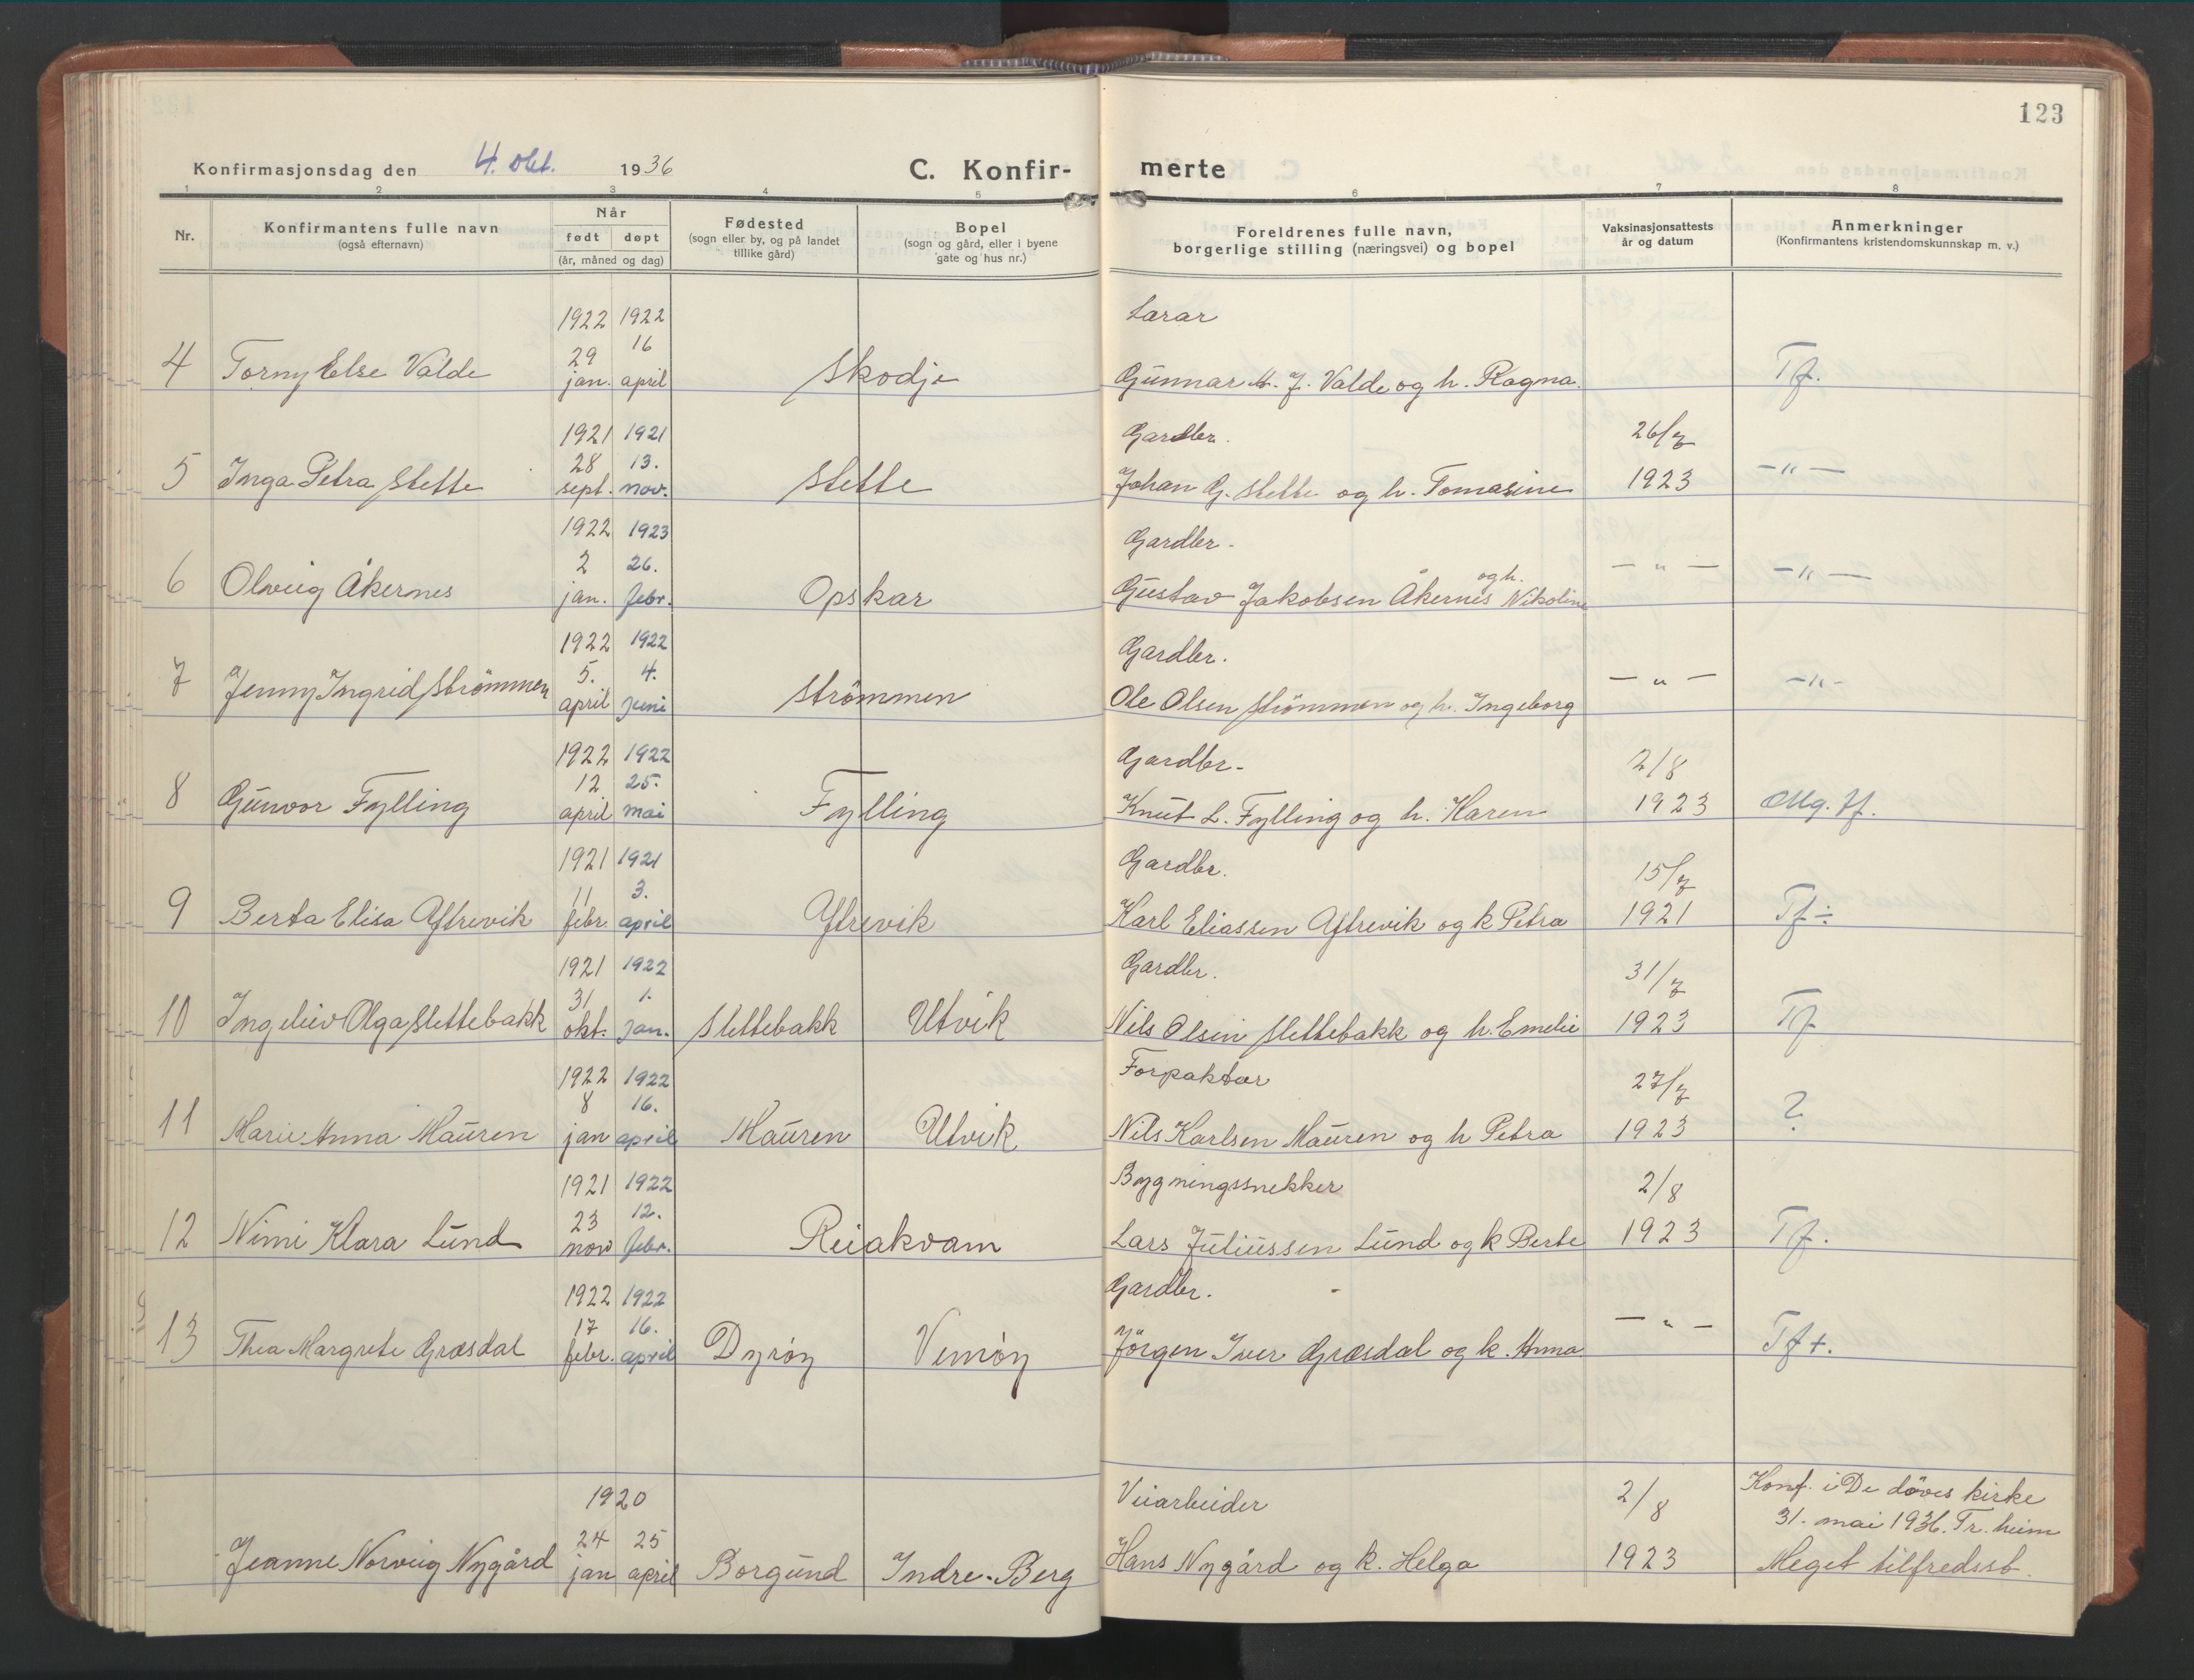 123
Konfirmasjonsdag den 4. okt. 1936
C. Konfir- merte
1 2 3 4 5 6 7 8
Nr.
Konfirmantens fulle navn
(også efternavn)
Når
født døpt
(år, måned og dag)
Fødested
(sogn eller by, og på landet
tillike gård)
Bopel
(sogn og gård, eller i byene
gate og hus nr.)
Foreldrenes fulle navn,
borgerlige stilling (næringsvei) og bopel
Vaksinasjonsattests
år og datum
Anmerkninger
(Konfirmantens kristendomskunnskap m. v.)
1922 1922 Lærar
29 16
4 Torny Else Valde jan. april Skodje Gunnar M. J. Valde og h. Ragna. Tf.
1921 1921 Gardbr. 26/7
28 13.
5 Inga Petra Slette sept. nov. Slette Johan G. Slette og h. Tomasine 1923 -"-
1922 1923 Gardbr.
2 26. og h.
6 Olveig Åkernes jan. febr. Opskar Gustav Jakobsen Åkernes Nikoline -"- -"-
1922 1922 Gardbr.
5. 4.
7 Jenny Ingrid Strömmen april juni Strömmen Ole Olsen Strömmen og h. Ingeborg -"- -"-
1922 1922 Gardbr. 2/8
12 25.
8 Gunvor Fylling april mai Fylling Knut L. Fylling og h. Karen 1923 Mg. tf.
1921 1921 Gardbr. 15/7
11 3.
9 Berta Elisa Yttrevik febr. april Ytrevik Karl Eliassen Yttrevik og k Petra 1921 Tf÷
1921 1922 Gardbr. 31/7
31 1.
10 Ingeleiv Olga Slettebakk okt. jan. Slettebakk Utvik Nils Olsen Slettebakk og h. Emelie 1923 Tf
1922 1922 Forpaktar 27/7
8 16.
11 Marie Anna Mauren jan april Mauren Utvik Nils Karlsen Mauren og h Petra 1923 ?
1921 1922 Bygningssnekker 2/8
23 12.
12 Nimi Klara Lund nov febr. Reiakvam Lars Juliussen Lund og k Berte 1923 Tf.
1922 1922 Gardbr.
17 16.
13 Thea Margrete Græsdal febr. april Dyrøy Vemøy Jörgen Iver Græsdal og k. Anna -"- Tf+.
1920 Veiarbeider 2/8 Konf. i De döves kirke
24 25 31. mai 1936. Tr.heim
Jeanne Norveig Nygård jan april Borgund Indre-Berg Hans Nygård og k. Helga 1923 Meget tilfredsst.